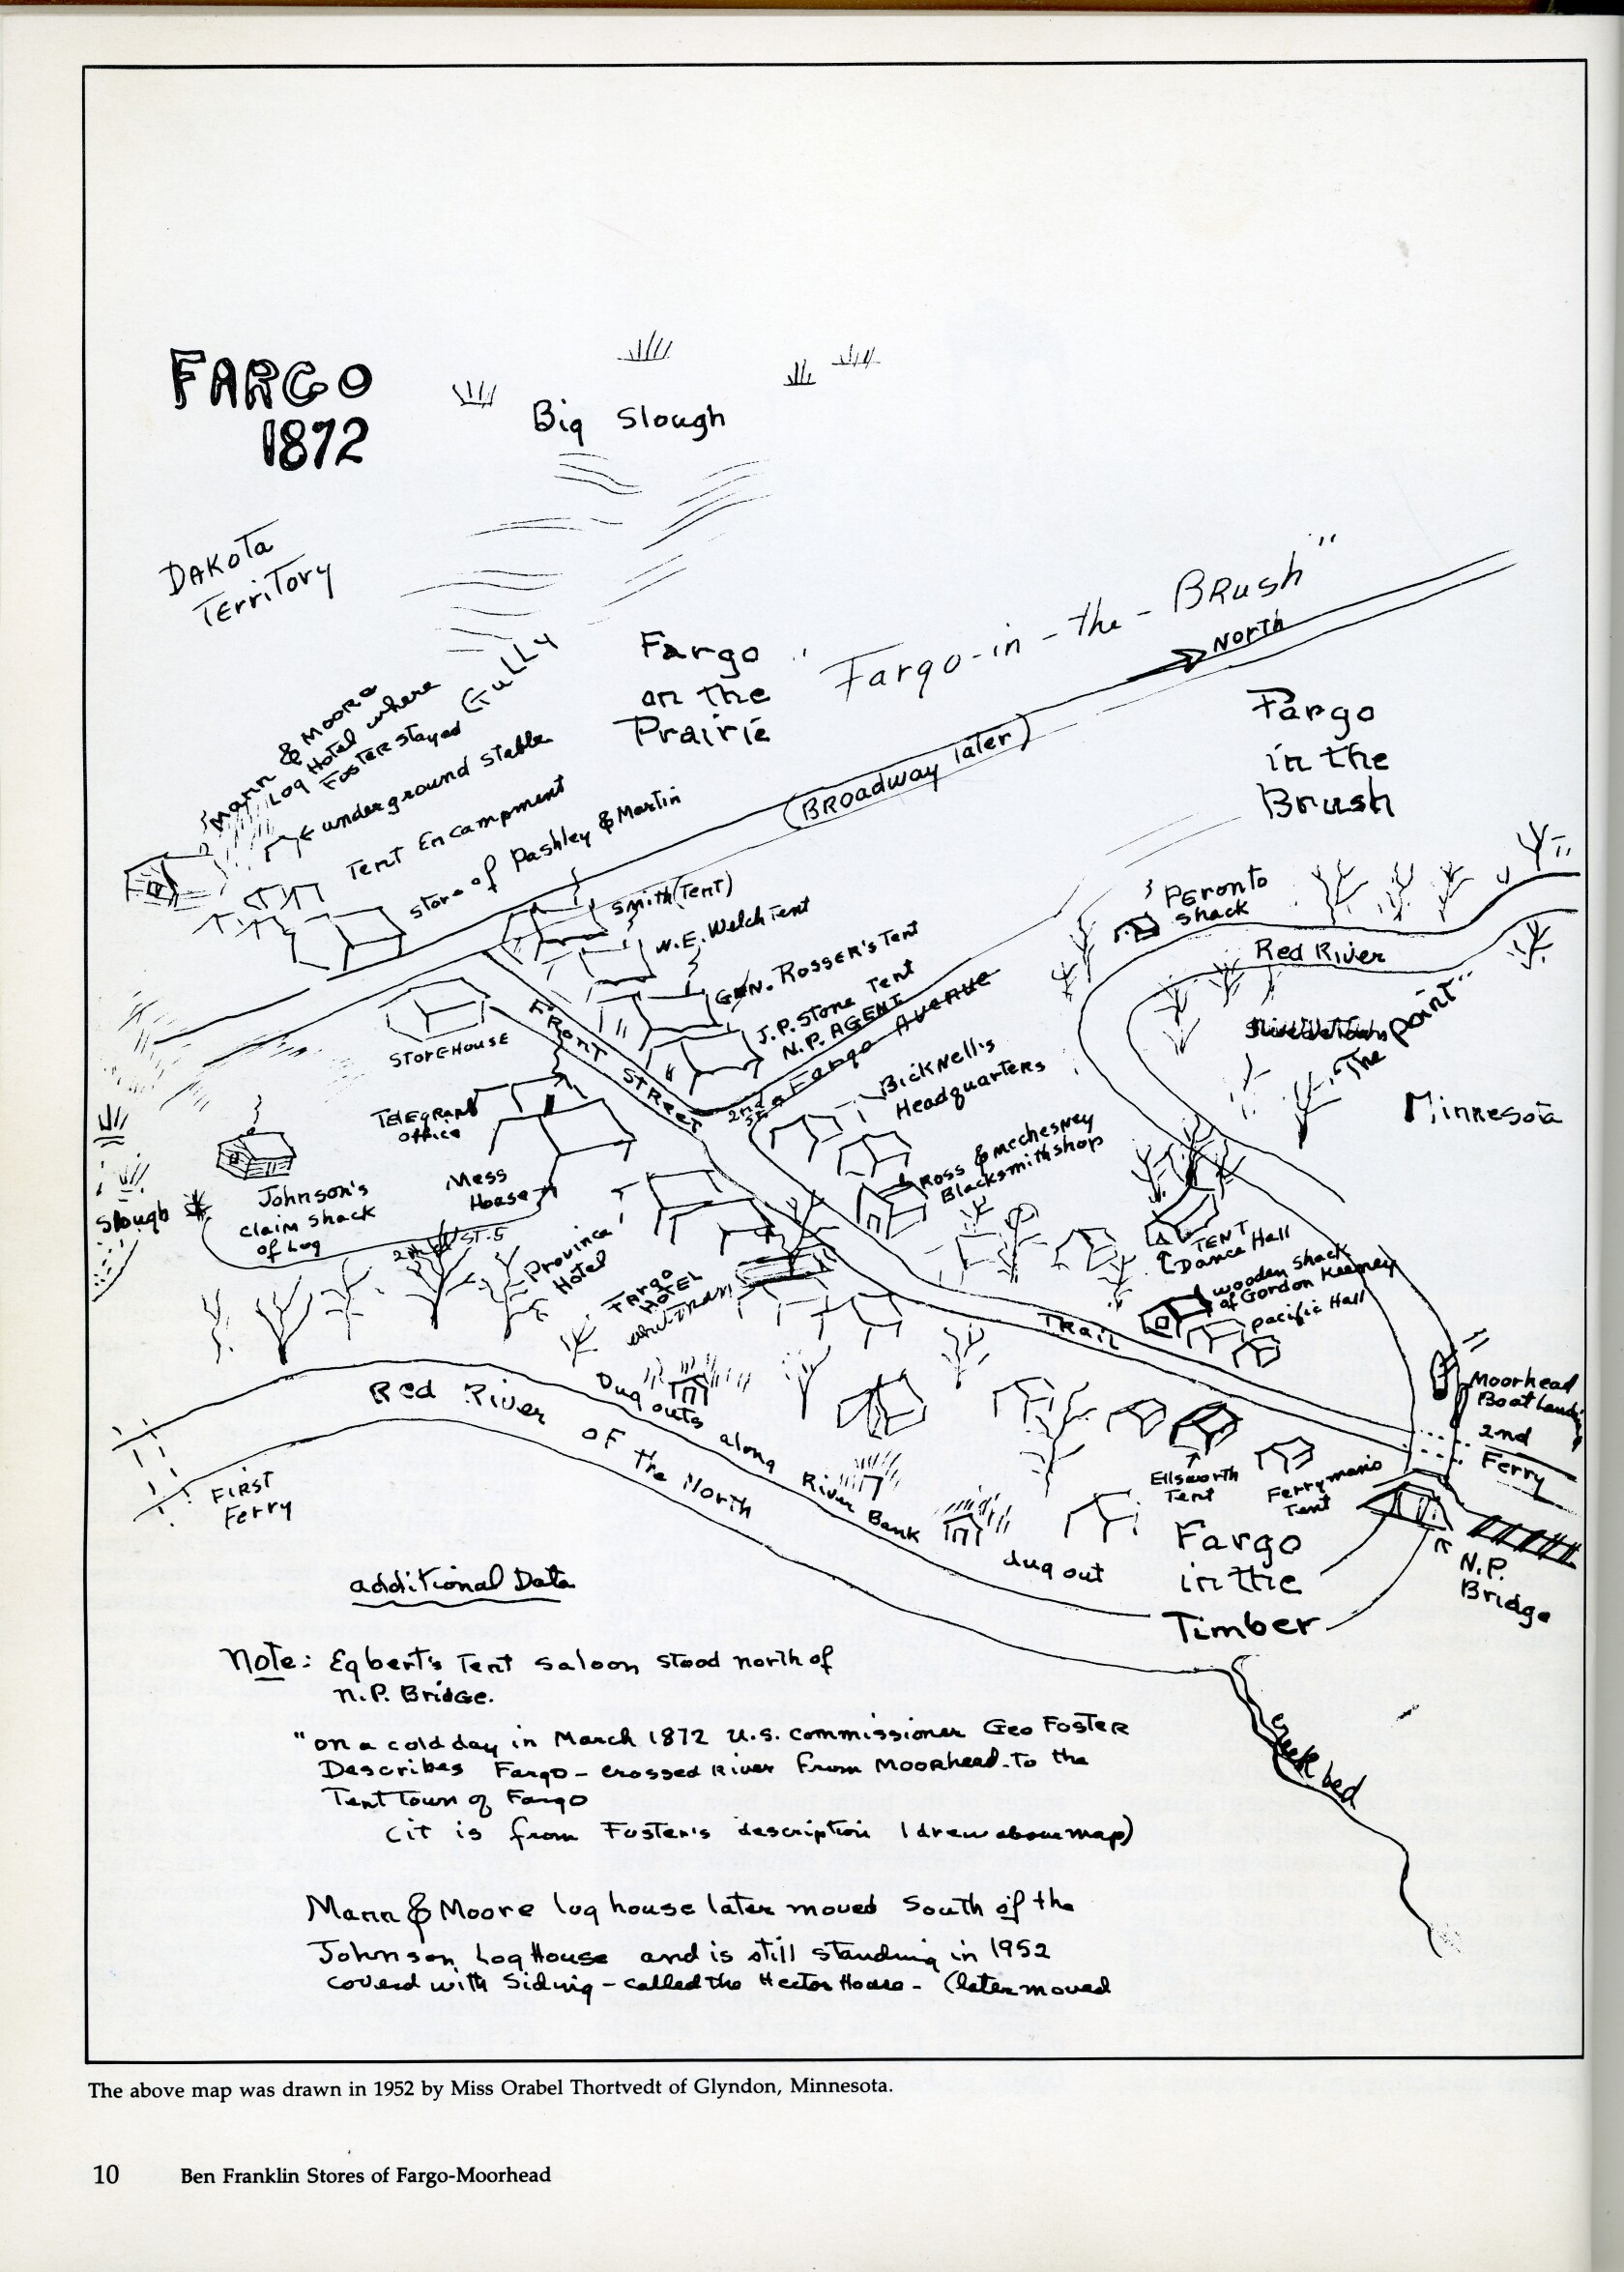 FARGO
1872
Big Slough
DAKOTA
TERRITORY
"Fargo-in-the-Brush"
NORTH
Fargo
on the
Prairie
GULLY
Mann & Moore
Log Hotel where
Foster stayed
underground stable
Tent Encampment
Store of Pashley & Martin
(Broadway later)
Fargo
in the
Brush
Smith (Tent)
W.E. Welch Tent
GEN. Rosser's Tent
J.P. Stone Tent
N.P. AGENT
Fargo Avenue
2nd
St
FRONT STREET
STOREHOUSE
Peronto
Shack
Red River
"The Point"
Minnesota
Bicknell's
Headquarters
Ross & McChesney
Blacksmith shop
TELEGRAPH
office
Mess
House
Johnson's
claim shack
of Log
Slough
2nd ST. S
Province
Hotel
Fargo
HOTEL
TENT
Dance Hall
wooden shack
of Gordon Keeney
pacific Hall
TRAIL
Moorhead
Boat Landing
2nd
Ferry
Dug outs along River Bank
Red River of the North
First
Ferry
Ellsworth
Tent
Ferrymans
Tent
dug out
Fargo
in the
Timber
N.P.
Bridge
additional Data
Note: Egbert's Tent saloon stood north of
N.P. Bridge.
"on a cold day in March 1872 U.S. commissioner Geo Foster
Describes Fargo - crossed River from Moorhead to the
Tent Town of Fargo
(it is from Foster's description I drew above map)
Creek bed
Mann & Moore log house later moved South of the
Johnson Log House and is still standing in 1952
coverd with Siding - called the Hector House - (later moved
The above map was drawn in 1952 by Miss Orabel Thortvedt of Glyndon, Minnesota.
10 Ben Franklin Stores of Fargo-Moorhead